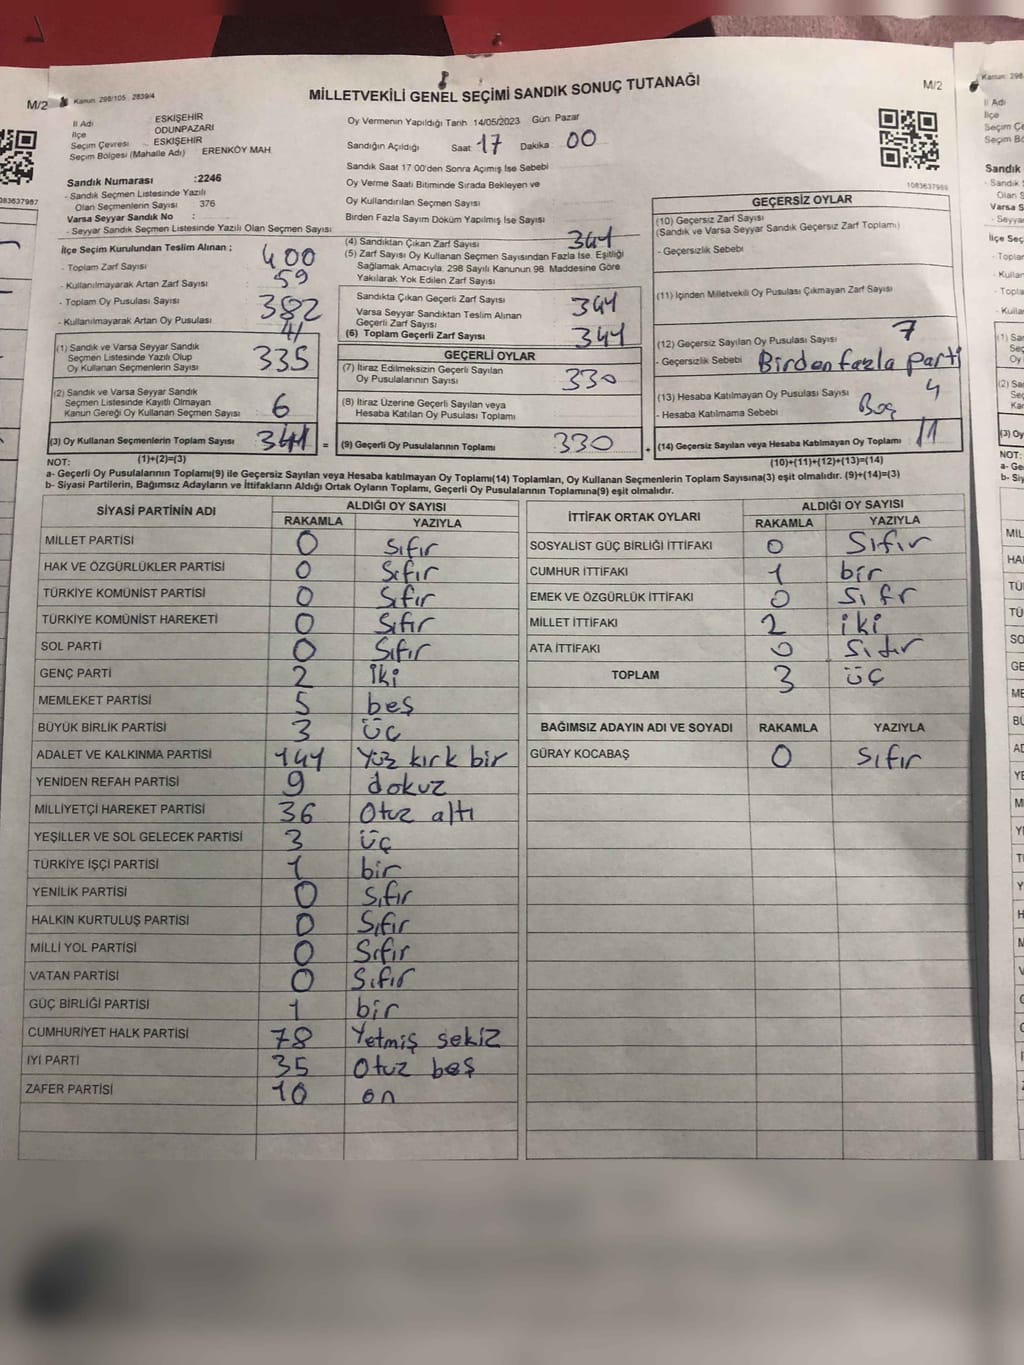 MİLLETVEKİLİ GENEL SEÇİMİ SANDIK SONUÇ TUTANAĞI
M/2
Kanun: 298/105 2839/4
M/2
İl Adı : ESKİŞEHİR
İlçe : ODUNPAZARI
Seçim Çevresi : ESKİŞEHİR
Seçim Bölgesi (Mahalle Adı) : ERENKÖY MAH.
Sandık Numarası :2246
- Sandık Seçmen Listesinde Yazılı
Olan Seçmenlerin Sayısı : 376
Varsa Seyyar Sandık No :
- Seyyar Sandık Seçmen Listesinde Yazılı Olan Seçmen Sayısı :
Oy Vermenin Yapıldığı Tarih 14/05/2023 Gün Pazar
Sandığın Açıldığı Saat 17 Dakika 00
Sandık Saat 17:00'den Sonra Açımış İse Sebebi
Oy Verme Saati Bitiminde Sırada Bekleyen ve
Oy Kullandırılan Seçmen Sayısı
Birden Fazla Sayım Döküm Yapılmış İse Sayısı
1083637989
İlçe Seçim Kurulundan Teslim Alınan ;
- Toplam Zarf Sayısı 400
- Kullanılmayarak Artan Zarf Sayısı 59
- Toplam Oy Pusulası Sayısı 382
- Kullanılmayarak Artan Oy Pusulası 41
(1) Sandık ve Varsa Seyyar Sandık
Seçmen Listesinde Yazılı Olup
Oy Kullanan Seçmenlerin Sayısı 335
(2) Sandık ve Varsa Seyyar Sandık
Seçmen Listesinde Kayıtlı Olmayan
Kanun Gereği Oy Kullanan Seçmen Sayısı 6
(3) Oy Kullanan Seçmenlerin Toplam Sayısı 341 =
(4) Sandıktan Çıkan Zarf Sayısı 341
(5) Zarf Sayısı Oy Kullanan Seçmen Sayısından Fazla İse, Eşitliği
Sağlamak Amacıyla, 298 Sayılı Kanunun 98. Maddesine Göre
Yakılarak Yok Edilen Zarf Sayısı
Sandıkta Çıkan Geçerli Zarf Sayısı 341
Varsa Seyyar Sandıktan Teslim Alınan
Geçerli Zarf Sayısı
(6) Toplam Geçerli Zarf Sayısı 341
GEÇERLİ OYLAR
(7) İtiraz Edilmeksizin Geçerli Sayılan
Oy Pusulalarının Sayısı 330
(8) İtiraz Üzerine Geçerli Sayılan veya
Hesaba Katılan Oy Pusulası Toplamı
(9) Geçerli Oy Pusulalarının Toplamı 330 +
GEÇERSİZ OYLAR
(10) Geçersiz Zarf Sayısı
(Sandık ve Varsa Seyyar Sandık Geçersiz Zarf Toplamı)
- Geçersizlik Sebebi
(11) İçinden Milletvekili Oy Pusulası Çıkmayan Zarf Sayısı
(12) Geçersiz Sayılan Oy Pusulası Sayısı 7
- Geçersizlik Sebebi Birden fazla parti
(13) Hesaba Katılmayan Oy Pusulası Sayısı 4
- Hesaba Katılmama Sebebi Boş
(14) Geçersiz Sayılan veya Hesaba Katılmayan Oy Toplamı 11
NOT: (1)+(2)=(3) (10)+(11)+(12)+(13)=(14)
a- Geçerli Oy Pusulalarının Toplamı(9) ile Geçersiz Sayılan veya Hesaba katılmayan Oy Toplamı(14) Toplamları, Oy Kullanan Seçmenlerin Toplam Sayısına(3) eşit olmalıdır. (9)+(14)=(3)
b- Siyasi Partilerin, Bağımsız Adayların ve İttifakların Aldığı Ortak Oyların Toplamı, Geçerli Oy Pusulalarının Toplamına(9) eşit olmalıdır.
SİYASİ PARTİNİN ADI ALDIĞI OY SAYISI
RAKAMLA YAZIYLA
MİLLET PARTİSİ 0 Sıfır
HAK VE ÖZGÜRLÜKLER PARTİSİ 0 Sıfır
TÜRKİYE KOMÜNİST PARTİSİ 0 Sıfır
TÜRKİYE KOMÜNİST HAREKETİ 0 Sıfır
SOL PARTİ 0 Sıfır
GENÇ PARTİ 2 İki
MEMLEKET PARTİSİ 5 beş
BÜYÜK BİRLİK PARTİSİ 3 üç
ADALET VE KALKINMA PARTİSİ 141 Yüz kırk bir
YENİDEN REFAH PARTİSİ 9 dokuz
MİLLİYETÇİ HAREKET PARTİSİ 36 Otuz altı
YEŞİLLER VE SOL GELECEK PARTİSİ 3 üç
TÜRKİYE İŞÇİ PARTİSİ 1 bir
YENİLİK PARTİSİ 0 Sıfır
HALKIN KURTULUŞ PARTİSİ 0 Sıfır
MİLLİ YOL PARTİSİ 0 Sıfır
VATAN PARTİSİ 0 Sıfır
GÜÇ BİRLİĞİ PARTİSİ 1 bir
CUMHURİYET HALK PARTİSİ 78 Yetmiş sekiz
İYİ PARTİ 35 Otuz beş
ZAFER PARTİSİ 10 on
İTTİFAK ORTAK OYLARI ALDIĞI OY SAYISI
RAKAMLA YAZIYLA
SOSYALİST GÜÇ BİRLİĞİ İTTİFAKI 0 Sıfır
CUMHUR İTTİFAKI 1 bir
EMEK VE ÖZGÜRLÜK İTTİFAKI 0 Sıfr
MİLLET İTTİFAKI 2 iki
ATA İTTİFAKI 0 Sıfır
TOPLAM 3 üç
BAĞIMSIZ ADAYIN ADI VE SOYADI RAKAMLA YAZIYLA
GÜRAY KOCABAŞ 0 Sıfır